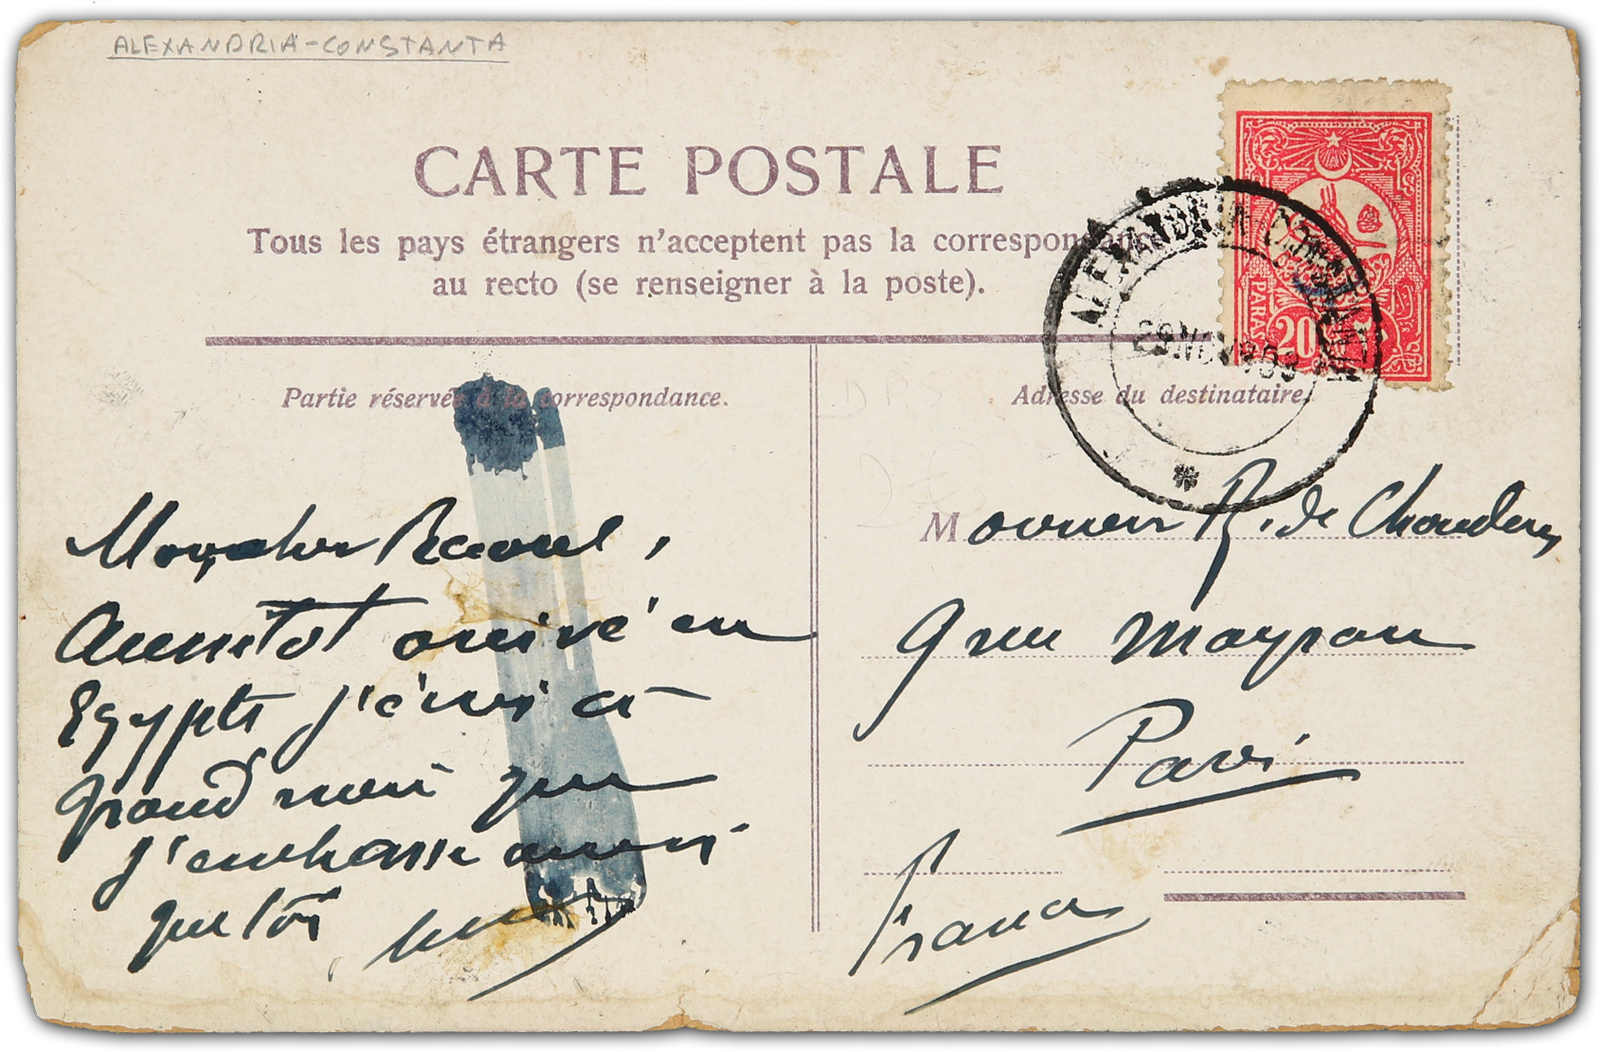 ALEXANDRIA-CONSTANTA
CARTE POSTALE
Tous les pays étrangers n'acceptent pas la correspondance
au recto (se renseigner à la poste).
PARAS 20
ALEXANDRIA-CONSTANTA
29 NOV 
Partie réservée à la correspondance.
Adresse du destinataire.
Mon cher Raoul,
Aussitôt arrivé en
Egypte j'écris à
grand mère que
j'embrasse ainsi
que toi
Monsieur R. de
9 rue Mayran
Paris
France